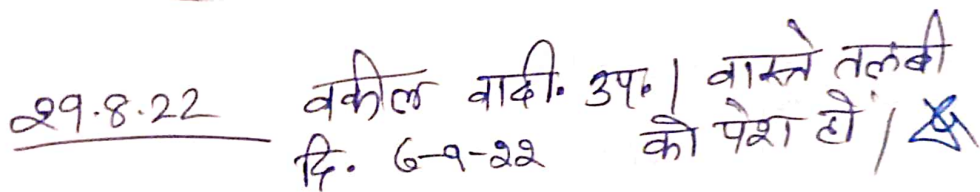 29.8.22 वकील वादी. उप. । वास्ते तलबी
दि. 6-9-22 को पेश हो ।